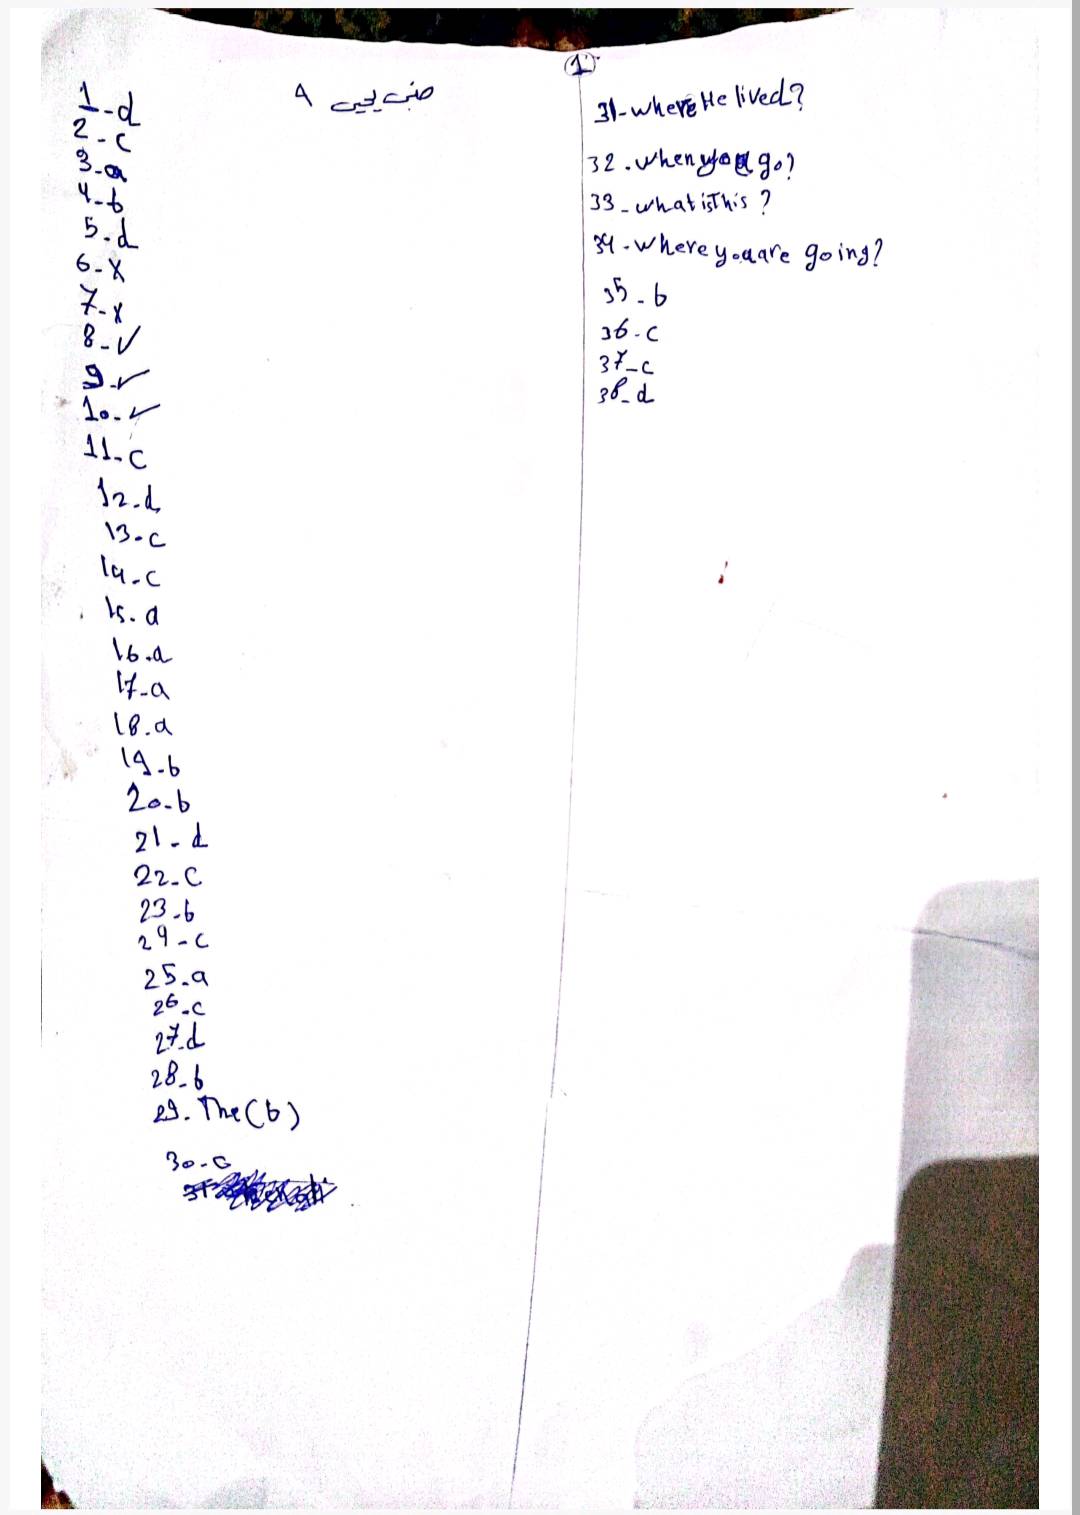 1
1-d
2-c
3-a
4-b
5-d
6-x
7-x
8-✓
9-✓
10-✓
11-c
12-d
13-c
14-c
15-a
16-a
17-a
18-a
19-b
20-b
21-d
22-c
23-b
24-c
25-a
26-c
27-d
28-b
29. The (b)
30-c
31-where He lived?
32. when you go?
33-what is This?
34-where you are going?
35-b
36-c
37-c
38-d